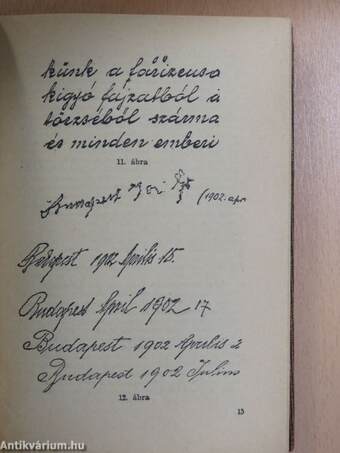 künk a farizeusa
kigyó fajzatból á
törzséből szárma
és minden emberi
11. ábra
Budapest (1902. apr
Budapest 1902 Április 15.
Budapest April 1902 17
Budapest 1902 Április 2
Budapest 1902 Julius
12. ábra
15
Antikvárium.hu